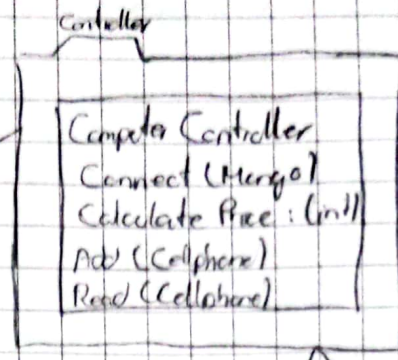 Controller
Computer Controller
Connect (Mongo)
Calculate Price : (int)
Add (Cellphone)
Read (Cellphone)